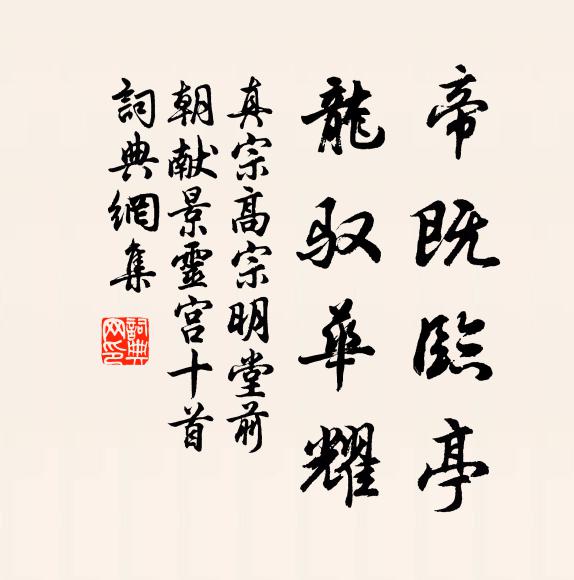 帝既臨亭
龍馭華耀
真宗高宗明堂前
朝献景靈宮十首
詞典網集
詞典網印